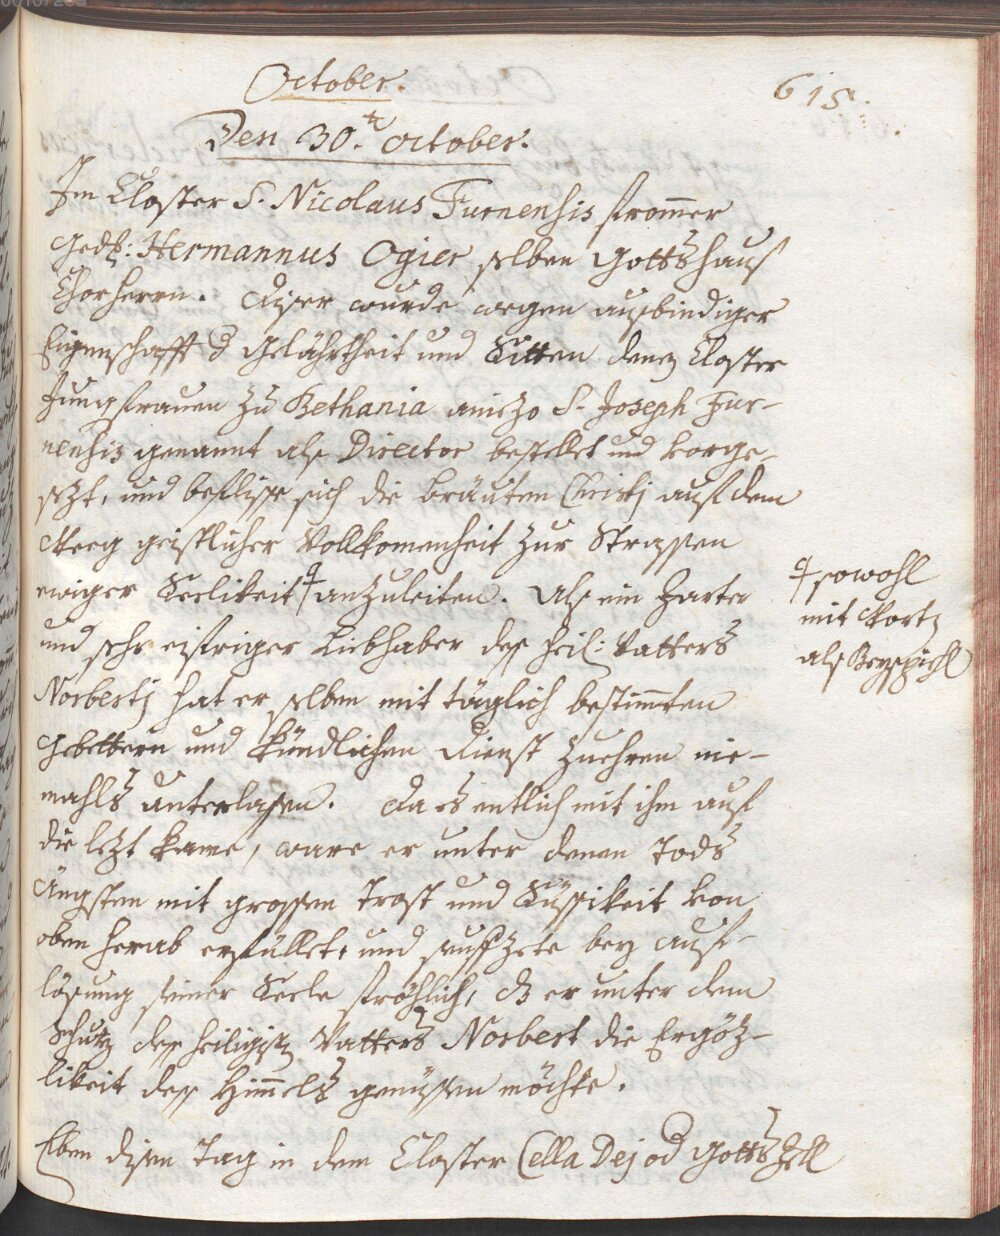 October.
615.
Den 30.t october.
Im Closter S. Nicolaus Furnensis frommer
Gedk: Hermannus Ogier selben Gottshauß
Chorherrn. Diser wurde wegen außbindiger
Eigenschafft d Gelährtheit und Sitten denen Closter
Jungfrauen zu Bethania aniezo S. Joseph Fur-
nensis genannt alß Director bestellet und vorge-
sezt, und beflisse sich die bräuten Christj auf dem
Weeg geistlicher Vollkomenheit zur Strassen
ewiger Seelikeit anzuleiten. Alß ein zarter
und sehr eifriger Liebhaber deß heil: Vatters
Norbertj hat er selben mit täglich bestimten
Gebettern und kündlichen dienst zuehren nie-
mahls unterlasen. Da es entlich mit ihm auf
die lezt kame, ware er unter denen Tods
Ängsten mit grossen Trost und Süssikeit von
oben herab erfüllet, und seuffzete bey auf-
lösung seiner Seele fröhlich, dz er unter dem
Schutz deß heiligisten Vatters Norbert die Ergöz-
likeit deß Himmels genüssen möchte.
Eben disen Tag in dem Closter Cella Dej od Gotts Zell
sowohl
mit Wortn
alß Beyspihl